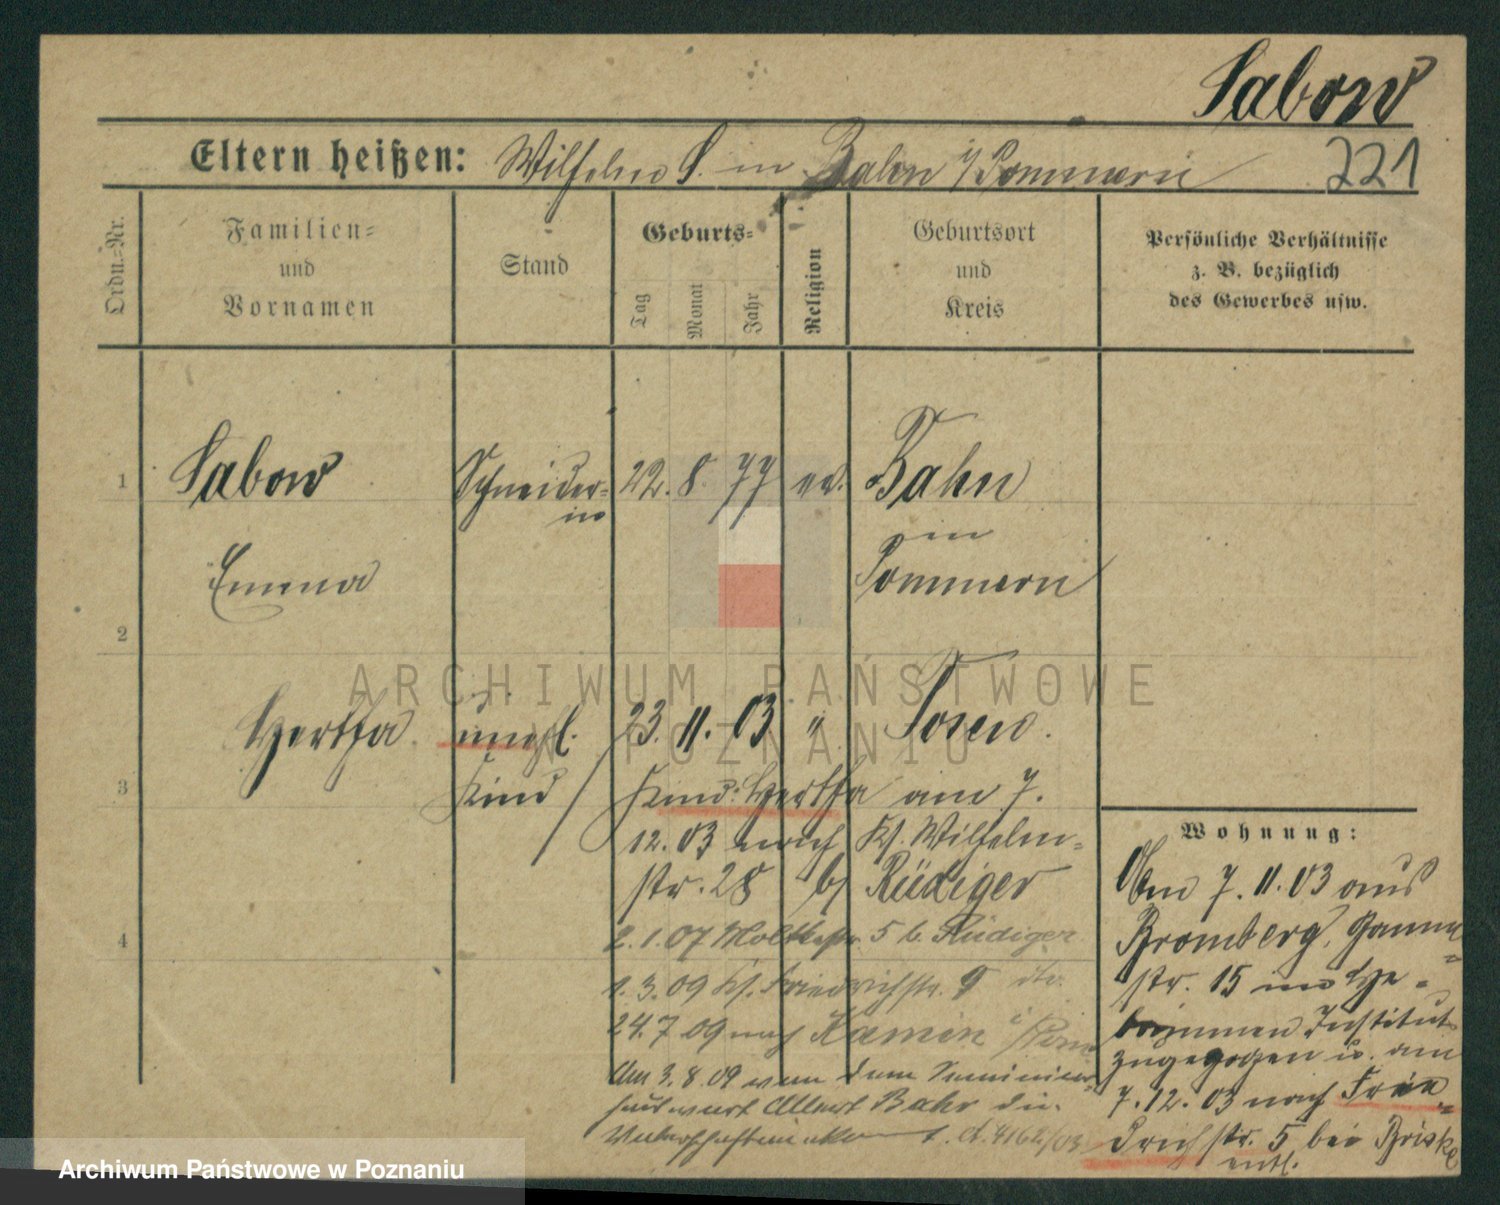 Sabow
Eltern heißen: Wilhelm S. in Bahn i/Pommern 221
Ordn.-Nr.
Familien-
und
Vornamen
Stand
Geburts-
Tag
Monat
Jahr
Religion
Geburtsort
und
Kreis
Persönliche Verhältnisse
z. B. bezüglich
des Gewerbes usw.
1 Sabow Schneider- 22. 8. 77 ev. Bahn
in
in
Emma Pommern
2
Hertha ungl. 23. 11. 03 " Posen.
Kind
3
Kind: Hertha am 7.
12. 03 nach Kl. Wilhelm-
str. 28 b/ Rüdiger
4
2. 1. 07 Moltkestr. 5 b. Rüdiger
1. 3. 09 Kl. Friedrichstr. 9 dto.
24. 7 09 nach Kamin i/Pom
Am 3. 8. 09 von dem
Albert Bahr die
Vaterschaft
Wohnung:
Am 7. 11. 03 aus
Bromberg, Gamm-
str. 15 ins He-
bammen Institut
zugezogen u. am
7. 12. 03 nach Frie-
drichstr. 5 bei Briske
entl.
ARCHIWUM PAŃSTWOWE
W POZNANIU
Archiwum Państwowe w Poznaniu